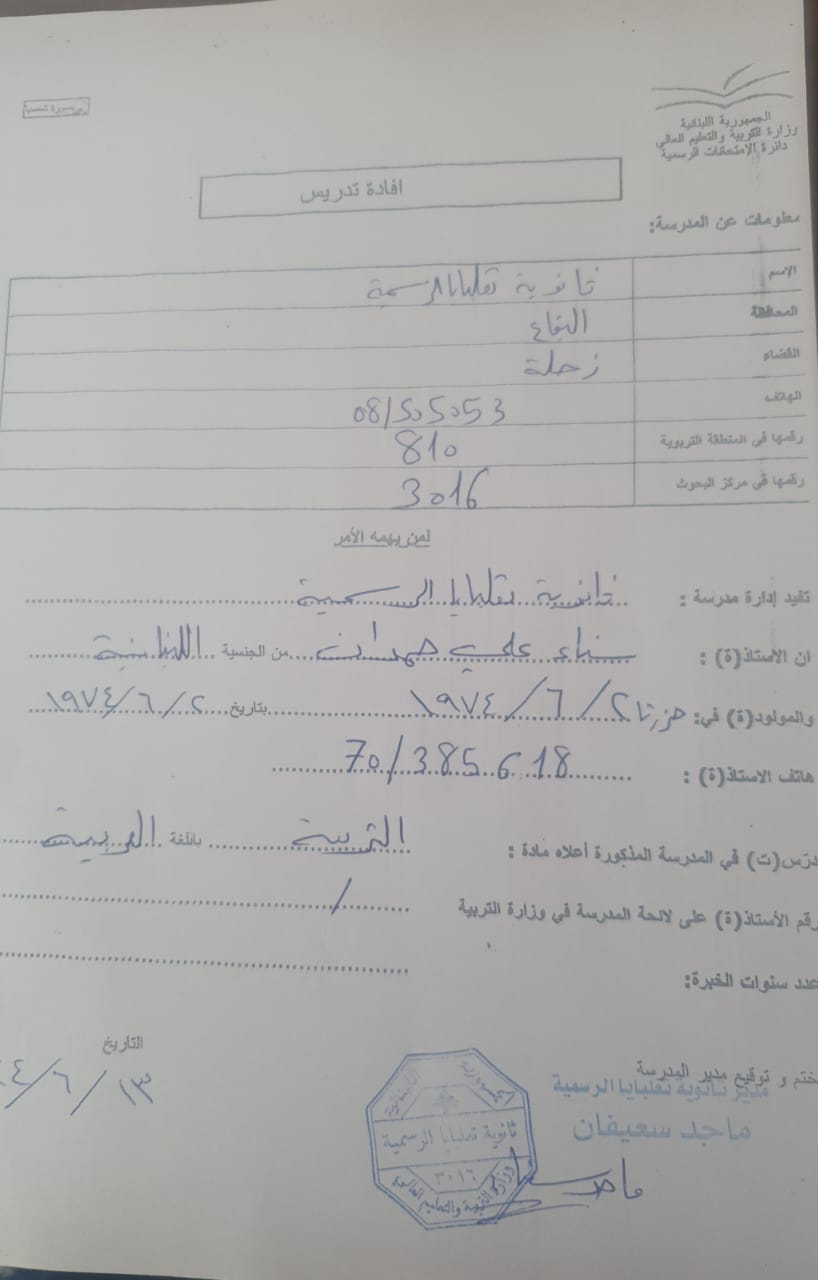 الجمهورية اللبنانية
وزارة التربية والتعليم العالي
دائرة الإمتحانات الرسمية
افادة تدريس
معلومات عن المدرسة:
الإسم ثانوية تعلبايا الرسمية
المحافظة البقاع
القضاء زحلة
الهاتف 08/505053
رقمها في المنطقة التربوية 810
رقمها في مركز البحوث 3016
لمن يهمه الأمر
تفيد إدارة مدرسة : ثانوية تعلبايا الرسمية
ان الاستاذ(ة) : سناء علي حمدان من الجنسية اللبنانية
والمولود(ة) في: حزرتا ٢/٦/١٩٧٤ بتاريخ ٢/٦/١٩٧٤
هاتف الاستاذ(ة) : 70/385618
درّس(ت) في المدرسة المذكورة أعلاه مادة : التربية باللغة العربية
رقم الأستاذ(ة) على لائحة المدرسة في وزارة التربية /
عدد سنوات الخبرة:
التاريخ
١٣/٦/
ختم و توقيع مدير المدرسة
مدير ثانوية تعلبايا الرسمية
ماجد سعيفان
الجمهورية اللبنانية
ثانوية تعلبايا الرسمية
٣٠١٦
وزارة التربية والتعليم العالي